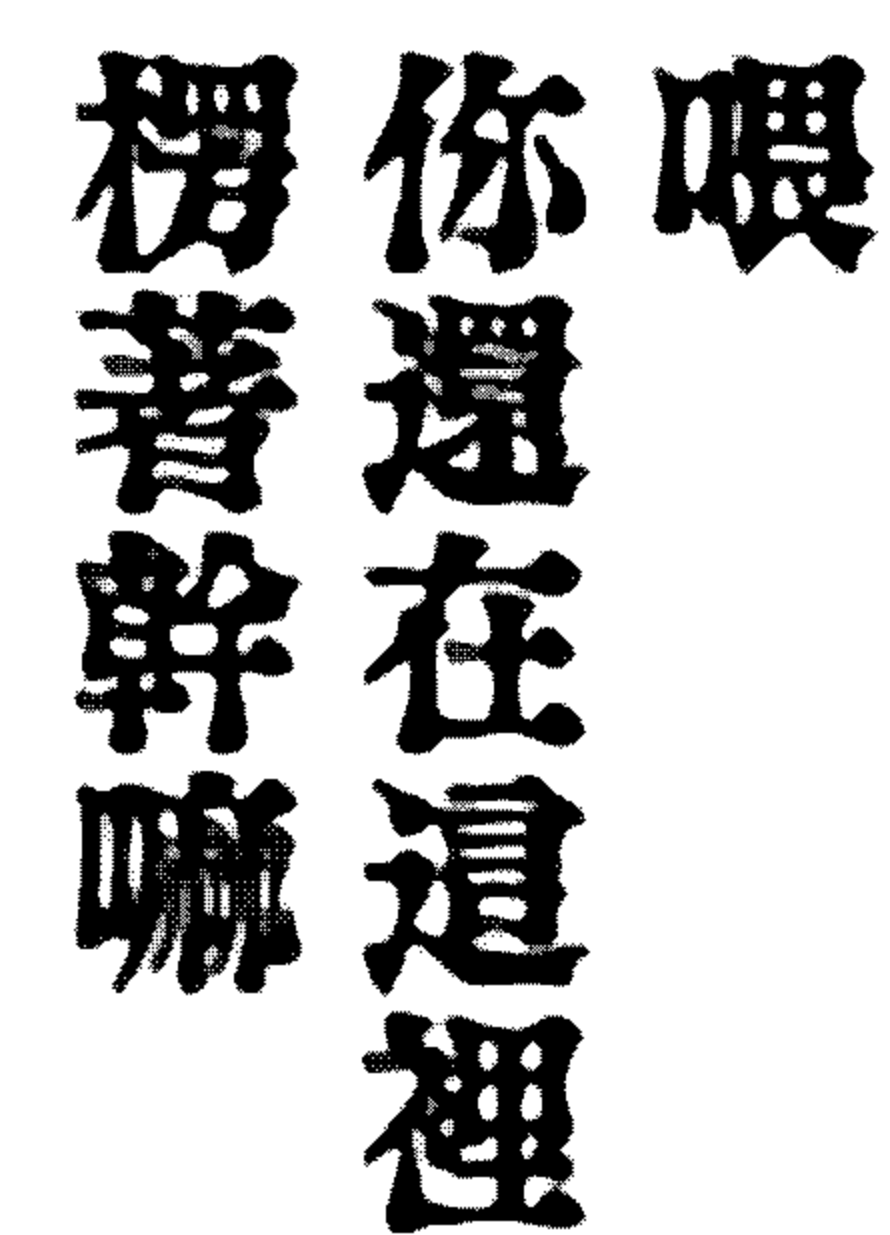 喂
你還在這裡
楞著幹嘛